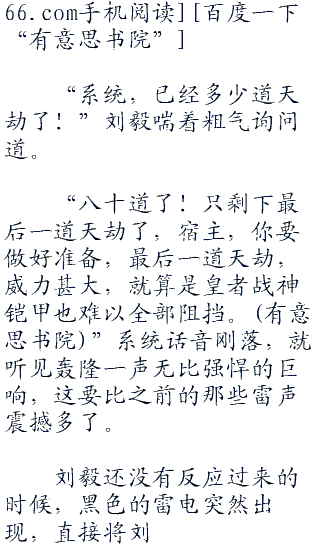 66.com手机阅读][百度一下
“有意思书院”]
“系统，已经多少道天
劫了！”刘毅喘着粗气询问
道。
“八十道了！只剩下最
后一道天劫了，宿主，你要
做好准备，最后一道天劫，
威力甚大，就算是皇者战神
铠甲也难以全部阻挡。(有意
思书院)”系统话音刚落，就
听见轰隆一声无比强悍的巨
响，这要比之前的那些雷声
震撼多了。
刘毅还没有反应过来的
时候，黑色的雷电突然出
现，直接将刘